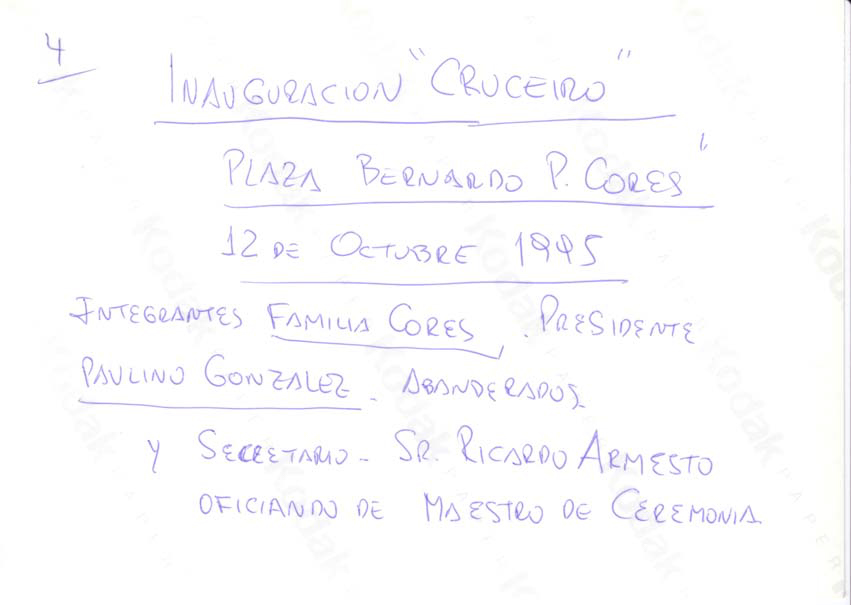 4
INAUGURACION "CRUCEIRO"
PLAZA BERNARDO P. CORES"
12 DE OCTUBRE 1995
INTEGRANTES FAMILIA CORES. PRESIDENTE
PAULINO GONZALEZ - ABANDERADOS
Y SECRETARIO - SR. RICARDO ARMESTO
OFICIANDO DE MAESTRO DE CEREMONIA
Kodak
PAPER